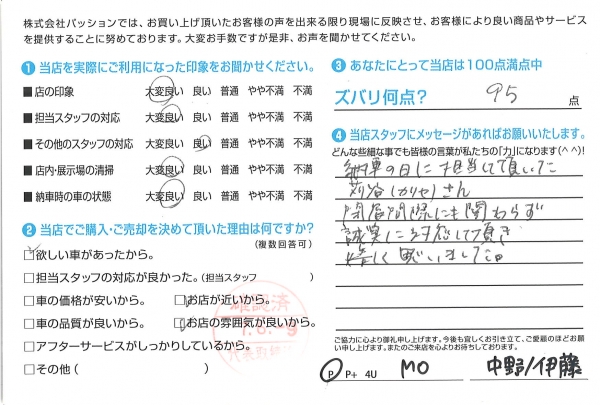 株式会社パッションでは、お買い上げ頂いたお客様の声を出来る限り現場に反映させ、お客様により良い商品やサービス
を提供することに努めております。大変お手数ですが是非、お声を聞かせてください。
1 当店を実際にご利用になった印象をお聞かせください。
■ 店の印象 大変良い 良い 普通 やや不満 不満
■ 担当スタッフの対応 大変良い 良い 普通 やや不満 不満
■ その他のスタッフの対応 大変良い 良い 普通 やや不満 不満
■ 店内・展示場の清掃 大変良い 良い 普通 やや不満 不満
■ 納車時の車の状態 大変良い 良い 普通 やや不満 不満
2 当店でご購入・ご売却を決めて頂いた理由は何ですか?
(複数回答可)
□欲しい車があったから。
□担当スタッフの対応が良かった。(担当スタッフ )
□車の価格が安いから。 □お店が近いから。
□車の品質が良いから。 □お店の雰囲気が良いから。
□アフターサービスがしっかりしているから。
□その他( )
確認済
3 あなたにとって当店は100点満点中
ズバリ何点? 95 点
4 当店スタッフにメッセージがあればお願いいたします。
どんな些細な事でも皆様の言葉が私たちの「力」になります(^^)!
納車の日に担当して頂いた
苅谷(かりや)さん
閉店間際にも関わらず
誠実に対応して頂き
嬉しく思いました。
ご協力に心より御礼申し上げます。今後も宜しくお引き立て、ご愛顧のほどお願
い申し上げます。またのご来店を心よりお待ちしております。
P P+ 4U MO 中野/伊藤